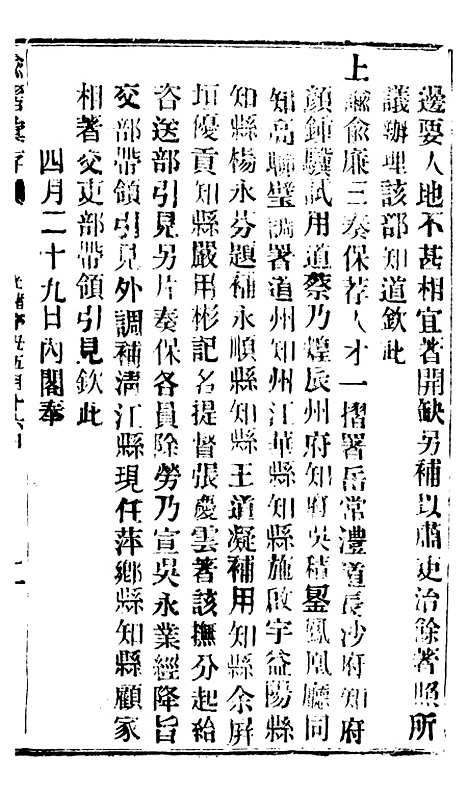 邊要人地不甚相宜著開缺另補以肅吏治餘著照所
議辦理該部知道欽此
上諭俞廉三奏保荐人才一摺署岳常澧道長沙府知府
顏鍾驥試用道蔡乃煌辰州府知府吳積鋆鳳凰廳同
知高聯璧調署道州知州江華縣知縣施啟宇益陽縣
知縣楊永芬題補永順縣知縣王道凝補用知縣余屏
垣優貢知縣嚴用彬記名提督張慶雲著該撫分起給
咨送部引見另片奏保各員除勞乃宣吳永業經降旨
交部帶領引見外調補清江縣現任萍鄉縣知縣顧家
相著交吏部帶領引見欽此
四月二十九日內閣奉
諭摺彙存
五月十六日